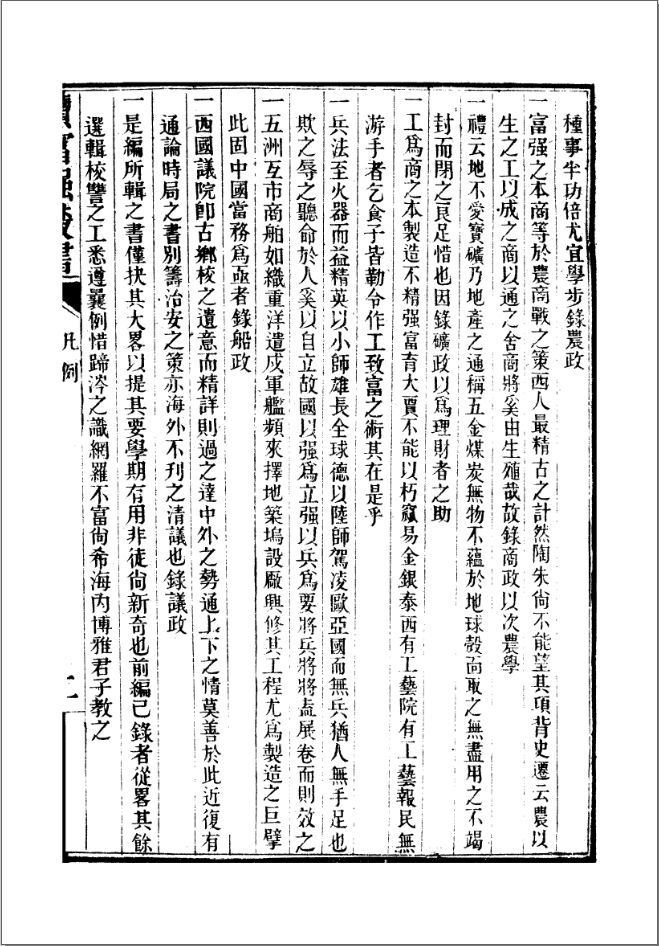 種事半功倍尤宜學步錄農政
一富强之本商等於農商戰之策西人最精古之計然陶朱尙不能望其項背史遷云農以
生之工以成之商以通之舍商將奚由生殖哉故錄商政以次農學
一禮云地不愛寶礦乃地產之通稱五金煤炭無物不蘊於地球殼面取之無盡用之不竭
封而閉之良足惜也因錄礦政以爲理財者之助
一工爲商之本製造不精强富育大賈不能以朽窳易金銀泰西有工藝院有工藝報民無
游手者乞食子皆勒令作工致富之術其在是乎
一兵法至火器而益精英以小師雄長全球德以陸師駕凌歐亞國而無兵猶人無手足也
欺之辱之聽命於人奚以自立故國以强爲立强以兵爲要將兵將將盍展卷而則效之
一五洲互市商舶如織重洋遣戍軍艦頻來擇地築塢設廠興修其工程尤爲製造之巨擘
此固中國當務爲亟者錄船政
一西國議院卽古鄉校之遺意而精詳則過之達中外之勢通上下之情莫善於此近復有
通論時局之書別籌治安之策亦海外不刊之清議也錄議政
一是編所輯之書僅抉其大畧以提其要學期有用非徒尙新奇也前編已錄者從畧其餘
選輯校讐之工悉遵曩例惜蹄涔之識網羅不富尙希海內博雅君子教之
富强叢書
凡例
二